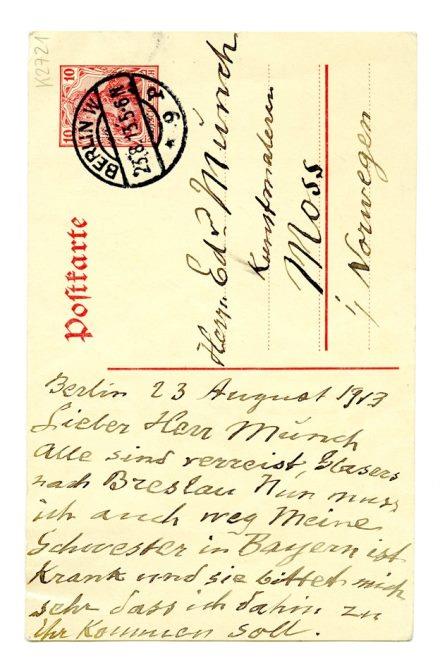 K2721
10 10
BERLIN W
23.8.13.5-6N
* 9 p
Postkarte
Herrn Edv Münch
Kunstmaleren
Moss
i/ Norwegen
Berlin 23 August 1913
Lieber Herr Münch
Alle sind verreist, Glasers
nach Breslau Nun muss
ich auch weg Meine
Schwester in Bayern ist
Krank und sie bittet mich
sehr dass ich dahin zu
Ihr Kommen soll.